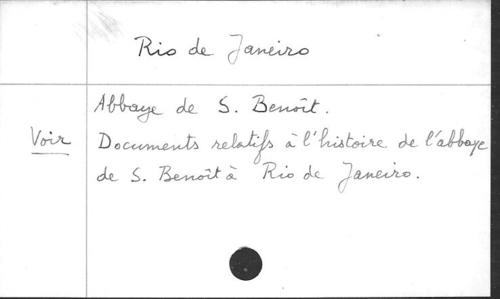 Rio de Janeiro
Abbaye de S. Benoît.
Voir Documents relatifs à l'histoire de l'abbaye
de S. Benoît à Rio de Janeiro.